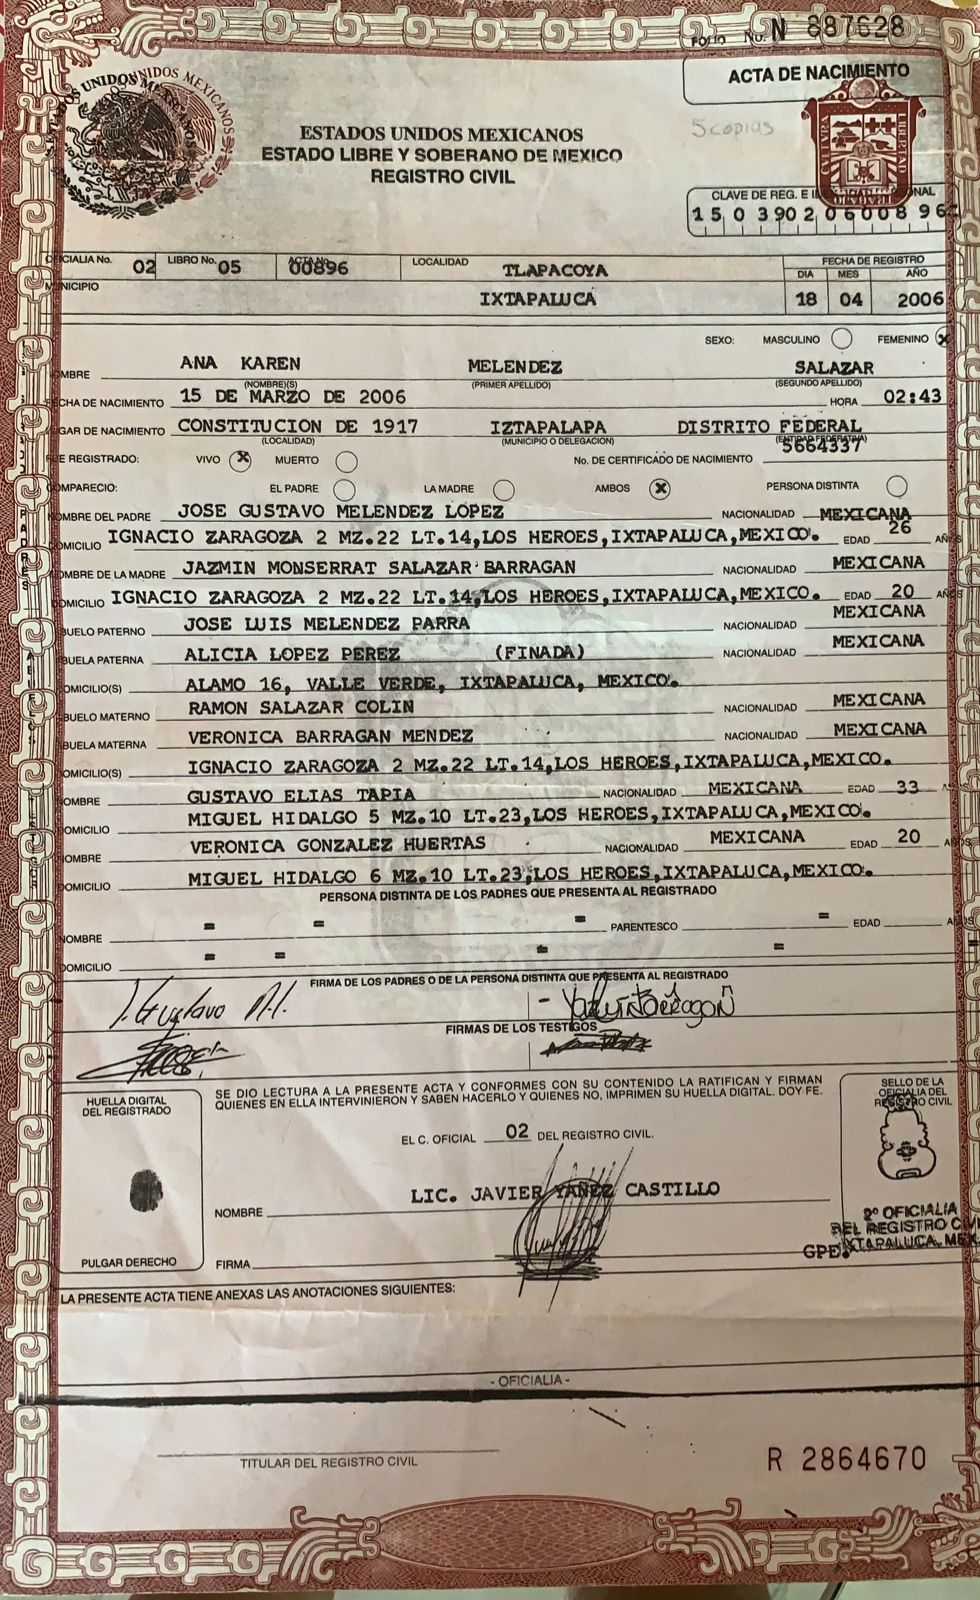 Folio No. N 887628
ACTA DE NACIMIENTO
ESTADOS UNIDOS MEXICANOS
5 copias
ESTADOS UNIDOS MEXICANOS
ESTADO LIBRE Y SOBERANO DE MEXICO
REGISTRO CIVIL
CLAVE DE REG. E
1 5 0 3 9 0 2 0 6 0 0 8 9 6
OFICIALIA No. 02 LIBRO No. 05 ACTA No. 00896 LOCALIDAD TLAPACOYA FECHA DE REGISTRO
DIA MES AÑO
MUNICIPIO IXTAPALUCA 18 04 2006
SEXO: MASCULINO FEMENINO X
NOMBRE ANA KAREN MELENDEZ SALAZAR
(NOMBRE(S) (PRIMER APELLIDO) (SEGUNDO APELLIDO)
FECHA DE NACIMIENTO 15 DE MARZO DE 2006 HORA 02:43
LUGAR DE NACIMIENTO CONSTITUCION DE 1917 IZTAPALAPA DISTRITO FEDERAL
(LOCALIDAD) (MUNICIPIO O DELEGACION) (ENTIDAD FEDERATIVA)
FUE REGISTRADO: VIVO X MUERTO No. DE CERTIFICADO DE NACIMIENTO 5664337
COMPARECIO: EL PADRE LA MADRE AMBOS X PERSONA DISTINTA
NOMBRE DEL PADRE JOSE GUSTAVO MELENDEZ LOPEZ NACIONALIDAD MEXICANA
DOMICILIO IGNACIO ZARAGOZA 2 MZ.22 LT.14,LOS HEROES,IXTAPALUCA,MEXICO. EDAD 26 AÑOS
NOMBRE DE LA MADRE JAZMIN MONSERRAT SALAZAR BARRAGAN NACIONALIDAD MEXICANA
DOMICILIO IGNACIO ZARAGOZA 2 MZ.22 LT.14,LOS HEROES,IXTAPALUCA,MEXICO. EDAD 20 AÑOS
ABUELO PATERNO JOSE LUIS MELENDEZ PARRA NACIONALIDAD MEXICANA
ABUELA PATERNA ALICIA LOPEZ PEREZ (FINADA) NACIONALIDAD MEXICANA
DOMICILIO(S) ALAMO 16, VALLE VERDE, IXTAPALUCA, MEXICO.
ABUELO MATERNO RAMON SALAZAR COLIN NACIONALIDAD MEXICANA
ABUELA MATERNA VERONICA BARRAGAN MENDEZ NACIONALIDAD MEXICANA
DOMICILIO(S) IGNACIO ZARAGOZA 2 MZ.22 LT.14,LOS HEROES,IXTAPALUCA,MEXICO.
NOMBRE GUSTAVO ELIAS TAPIA NACIONALIDAD MEXICANA EDAD 33
DOMICILIO MIGUEL HIDALGO 5 MZ.10 LT.23,LOS HEROES,IXTAPALUCA,MEXICO.
NOMBRE VERONICA GONZALEZ HUERTAS NACIONALIDAD MEXICANA EDAD 20 AÑOS
DOMICILIO MIGUEL HIDALGO 6 MZ.10 LT.23,LOS HEROES,IXTAPALUCA,MEXICO.
PERSONA DISTINTA DE LOS PADRES QUE PRESENTA AL REGISTRADO
NOMBRE = = = PARENTESCO = EDAD AÑOS
DOMICILIO = = = =
FIRMA DE LOS PADRES O DE LA PERSONA DISTINTA QUE PRESENTA AL REGISTRADO
J. Gustavo M.L.
FIRMAS DE LOS TESTIGOS
HUELLA DIGITAL
DEL REGISTRADO
SE DIO LECTURA A LA PRESENTE ACTA Y CONFORMES CON SU CONTENIDO LA RATIFICAN Y FIRMAN
QUIENES EN ELLA INTERVINIERON Y SABEN HACERLO Y QUIENES NO, IMPRIMEN SU HUELLA DIGITAL. DOY FE.
SELLO DE LA
OFICIALIA DEL
REGISTRO CIVIL
EL C. OFICIAL 02 DEL REGISTRO CIVIL.
NOMBRE LIC. JAVIER YAÑEZ CASTILLO
2º OFICIALIA
DEL REGISTRO CIVIL
IXTAPALUCA, MEX.
GPE.
PULGAR DERECHO
FIRMA
LA PRESENTE ACTA TIENE ANEXAS LAS ANOTACIONES SIGUIENTES:
- OFICIALIA -
TITULAR DEL REGISTRO CIVIL
R 2864670